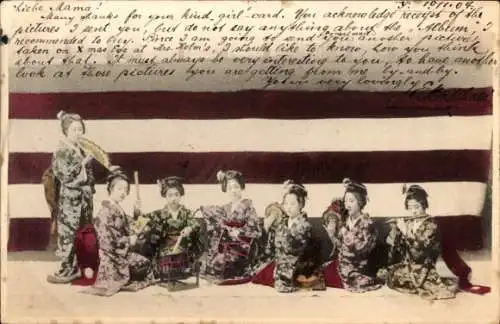 Liebe Mama!
10/11.04.
Many thanks for your kind "girl"-card. You acknowledge receipt of the
pictures I sent you, but do not say anything about the "Album", I
recommended to buy. Since I am going to send you another picture
taken on X mas Eve at Mr. I should like to know, how you think
about that. It must always be very interesting to you, to have another
look at those pictures you are getting from me by-and-by.
Yours very lovingly